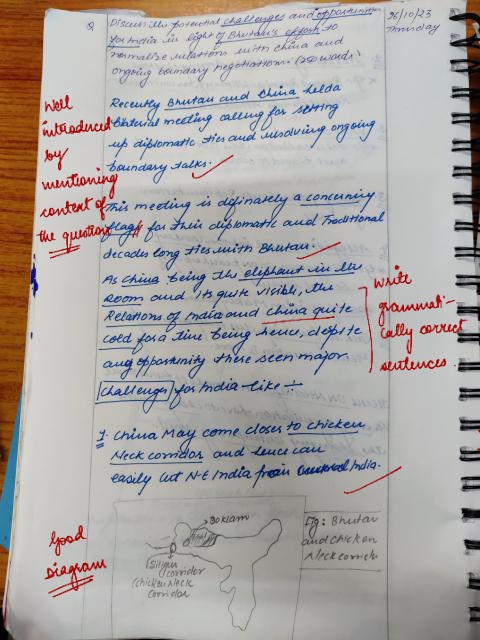 Q Discuss the potential challenges and opportunities
for India in light of Bhutan's efforts to
normalize relations with china and
ongoing boundary negotiations. (250 words)
26/10/23
Thursday
Recently Bhutan and China held a
bilateral meeting calling for setting
up diplomatic ties and resolving ongoing
boundary talks.
Well
introduced
by
mentioning
context of
the question
This meeting is definately a concerning
flag for their diplomatic and Traditional
decades long ties with Bhutan.
As China being the elephant in the
Room and its quite visible, the
Relations of India and China quite
cold for a time being hence, depite
any opportunity there seen major
Challenges for India like :-
write
grammati-
cally correct
sentences.
1. China May come closer to chicken
Neck corridor and hence can
easily cut N-E India from India.
Good
Diagram
Doklam
Siliguri
corridor
(chicken Neck
corridor
Fig: Bhutan
and Chicken
Neck corridor